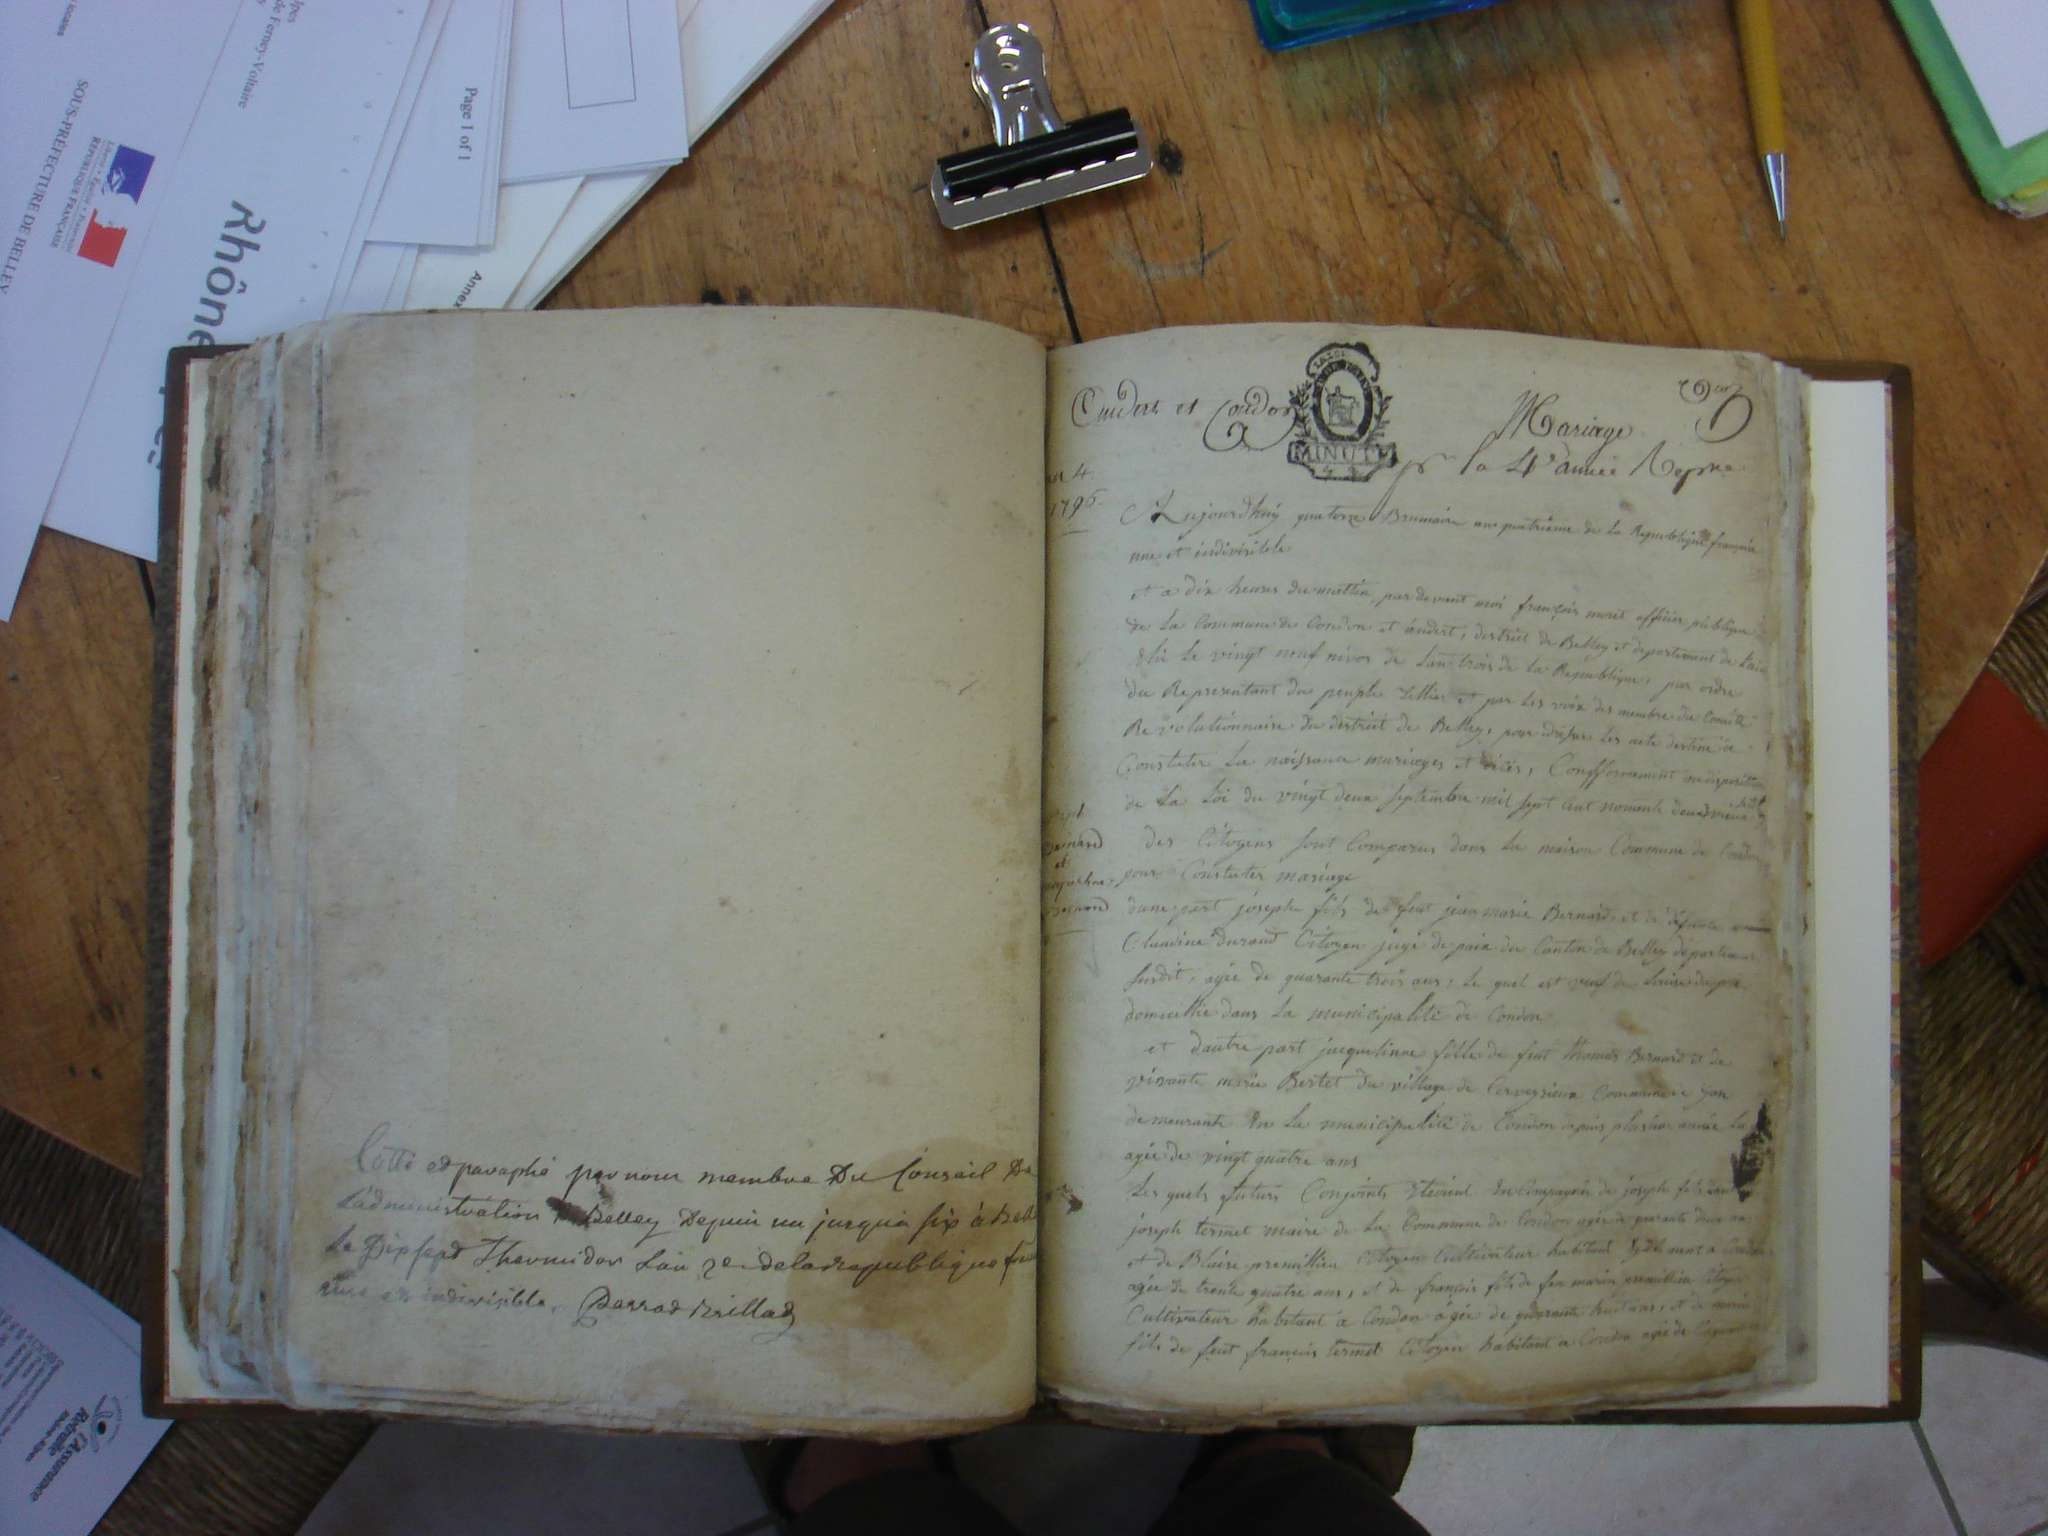 de Ferney-Voltaire
Page 1 of 1
SOUS-PRÉFECTURE DE BELLEY
Liberté • Égalité • Fraternité
RÉPUBLIQUE FRANÇAISE
Rhône
Annex
L'Assurance
Retraite
Cotté et paraphé par nous membre Du Conseil De
L'administration Belley Depuis un jusqua six à Bell
Le Dixsept Thermidor L'an 2e de la republique fran
une et indivisible.
Andert et Condon
MINUTE
Mariage
pr la 4e année Repne
an 4.
1796.
Aujourdhuy quatorze Brumaire an quatrième de la Republique française
une et indivisible
et a dix heures du mattin, par devant moi françois moret officier publique
de la Commune de Condon et andert, district de Belley et departement de Lain
élu le vingt neuf nivos de Lan trois de la République, par ordre
du Representant du peuple et par les voix des membre du Comitté
Revolutionnaire du district de Belley, pour rediger les acte destiné a
Constater La naissance mariages et décès, Confformement au disposition
de La Loi du vingt deux septembre mil sept cent nonente deux
des Citoyens sont Comparus dans La maison Commune de Condon
pour Constater mariage
Bernard
et
jaqueline
Bernard
dune part joseph fils de feut jean marie Bernard et de défunte
Claudine durand Citoyen juge de paix du Canton de Belley departement
susdit, agée de quarante trois ans, Le quel est veuf de Louise
domicillié dans La municipalité de Condon
et dautre part jacquelinne fille de feut thomas Bernard et de
vivante marie Bertet du village de Cerveyrieux Commune
demeurante en La municipalité de Condon depuis plusieur année
agée de vingt quatre ans
Les quels futurs Conjoints étoient en Compagnie de joseph fils
joseph termet maire de La Commune de Condon agée de quarante deux ans
et de Blaise premillieu Citoyen Cultivateur habitant a Condon
agée de trente quatre ans, et de françois fils de feu marin premillieu Citoyen
Cultivateur habitant a Condon agée de quarante huit ans, et de
fils de feut françois termet Citoyen habitant a Condon agée de